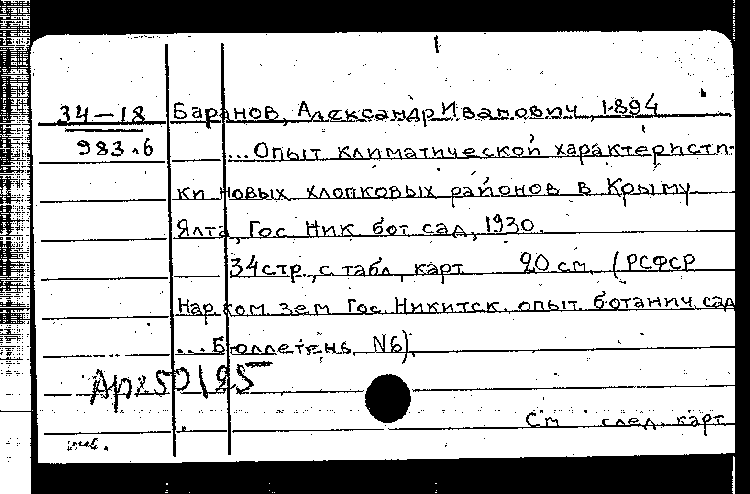 34—18 Баранов, Александр Иванович, 1894
983.б ...Опыт климатической характеристи-
ки новых хлопковых районов в Крыму
Ялта, Гос. Ник бот сад, 1930.
34 стр., с табл, карт 20 см. (РСФСР
Нарком зем Гос. Никитск. опыт. ботанич. сад
...Бюллетень, N6).
Арх50/25
См след. карт